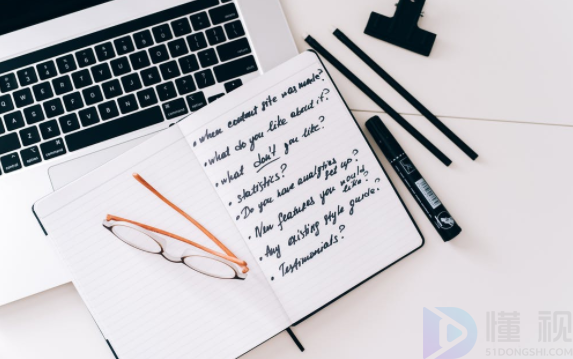 • When content site was made?
• What do you like about it?
• What don't you like?
• Statistics?
• Do you have analytics set up?
• New features you would like?
• Any existing style guide?
• Testimonials?
懂视
51DONGSHI.COM